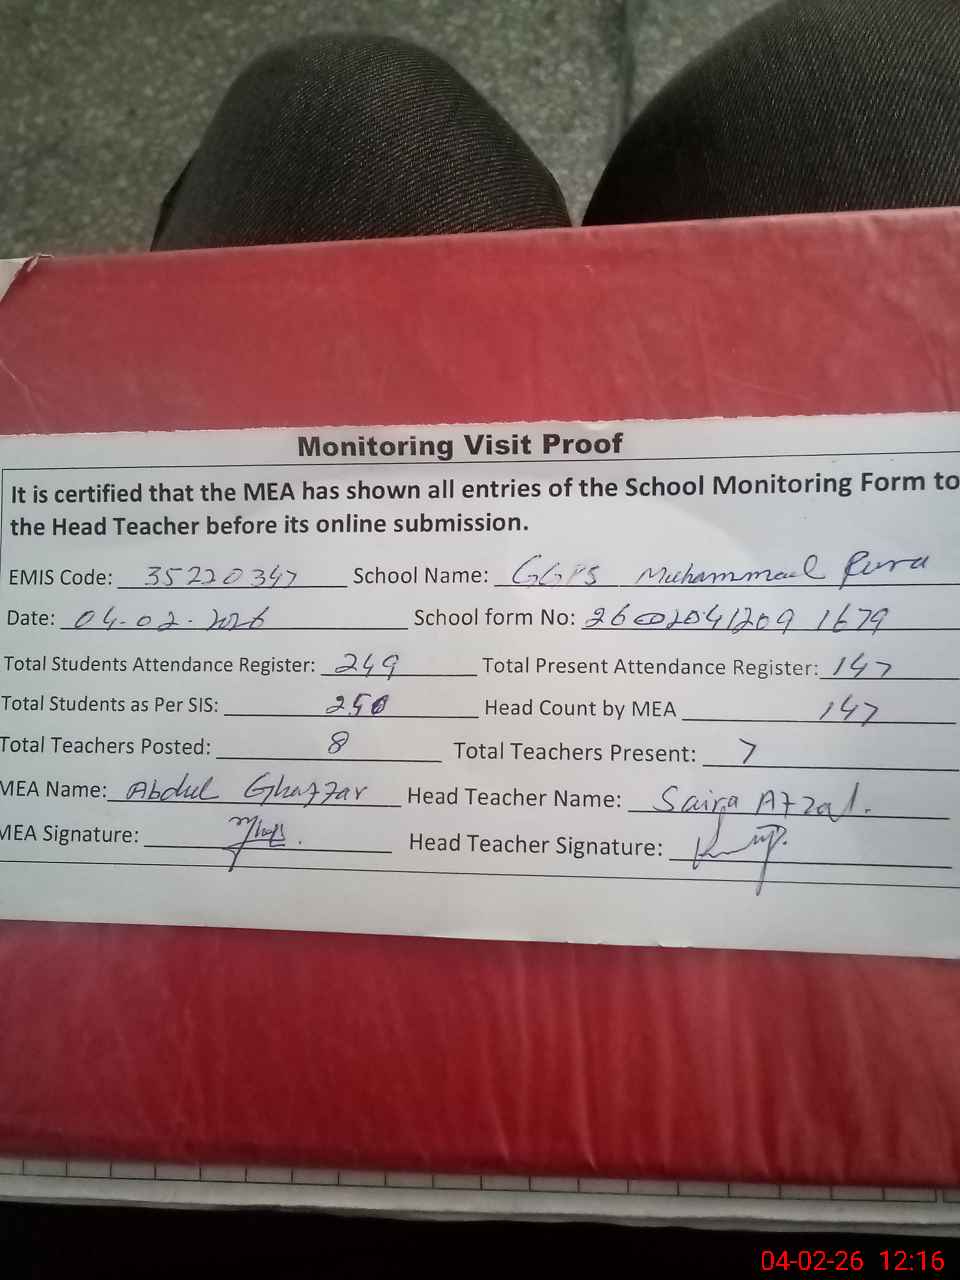 Monitoring Visit Proof
It is certified that the MEA has shown all entries of the School Monitoring Form to
the Head Teacher before its online submission.
EMIS Code: 35220347 School Name: GGPS Muhammad Pura
Date: 04-02-2026 School form No: 2602041209 1679
Total Students Attendance Register: 249 Total Present Attendance Register: 147
Total Students as Per SIS: 250 Head Count by MEA 147
Total Teachers Posted: 8 Total Teachers Present: 7
MEA Name: Abdul Ghaffar Head Teacher Name: Saira Afzal.
MEA Signature: Head Teacher Signature:
04-02-26 12:16